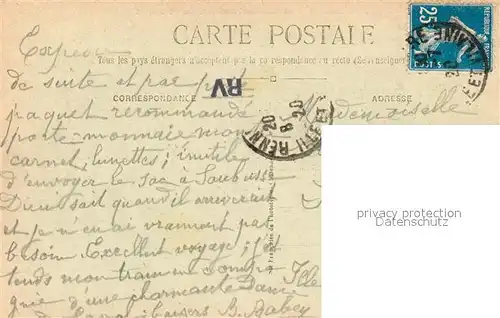 CARTE POSTALE
Tous les pays étrangers n'acceptent pas la correspondance au recto
CORRESPONDANCE
ADRESSE
RV
25
REPUBLIQUE FRANÇAISE
POSTES
Mademoiselle
de suite et par
paquet recommandé
porte-monnaie mon
carnet, lunettes; inutile
d'envoyer le sac à
Dieu sait quand il arriverait
et je n'en ai vraiment pas
besoin Excellent voyage; j'
tends mon train en compa
gnie d'une charmante Dame
baisers B.
RENN
20
8
20
privacy protection
Datenschutz